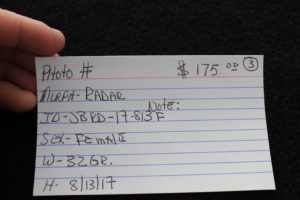 Photo # $ 175.00 3
Morph - RADAR
Note:
ID - SBRD - 17-813F
Sex - Female
W - 32GR.
H - 8/13/17